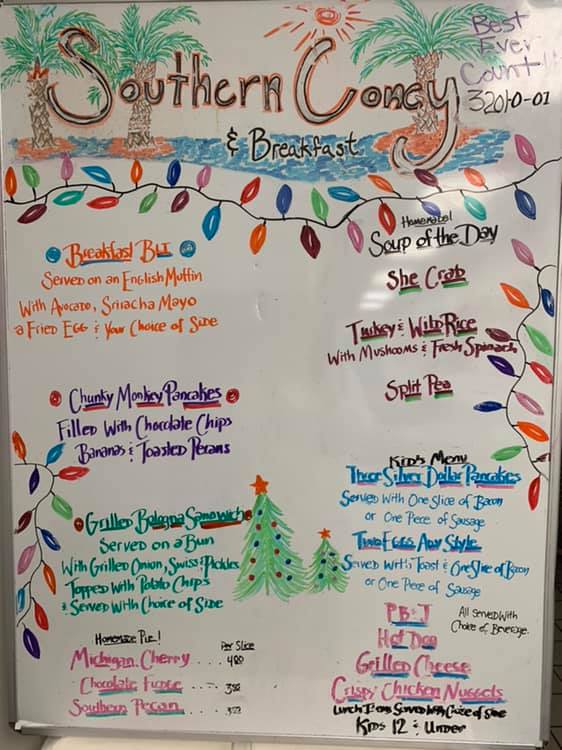 Southern Coney
& Breakfast
Best
Ever
Count!!
3201-0-01
Breakfast BLT
Served on an English Muffin
With Avocado, Sriracha Mayo
a Fried Egg & Your Choice of Side
Chunky Monkey Pancakes
Filled With Chocolate Chips
Bananas & Toasted Pecans
Grilled Bologna Sandwich
Served on a Bun
With Grilled Onion, Swiss & Pickles
Topped With Potato Chips
& Served With Choice of Side
Homemade Pie!
Per Slice
Michigan Cherry ....
Chocolate Fudge ....
Southern Pecan ....
Homemade!
Soup of the Day
She Crab
Turkey & Wild Rice
With Mushooms & Fresh Spinach
Split Pea
Kid's Menu
Three Silver Dollar Pancakes
Served With One Slice of Bacon
or One Piece of Sausage
Two Eggs Any Style
Served With Toast & One Slice of Bacon
or One Piece of Sausage
PB & J
Hot Dog
Grilled Cheese
Crispy Chicken Nuggets
All Served With
Choice of Beverage.
Lunch Items Served With Choice of Side
Kids 12 & Under